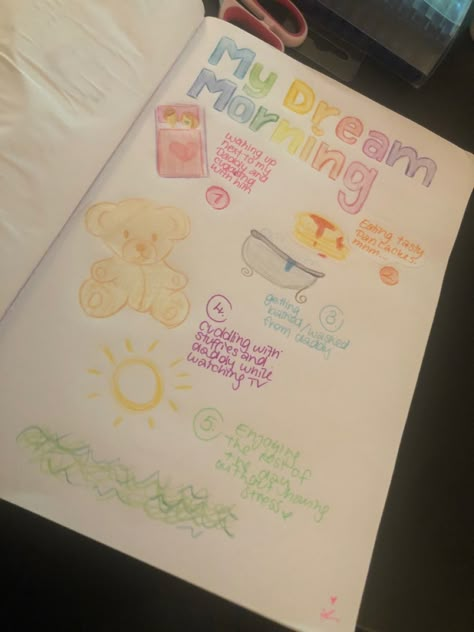 My Dream
Morning
waking up
next to my
Daddy and
cuddling
with him
1
Eating tasty
Pancakes
mnm...
3
getting
bathed/washed
from daddy
4.
Cuddling with
stuffies and
daddy while
watching TV
5
Enjoying
the rest of
the day
without having
stress